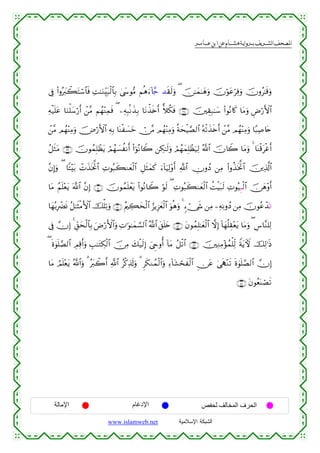 المصحف الشريف برواية هشام عن ابن عامر
وَقَٰرُونَ وَفِرۡعَوۡنَ وَهَٰمَٰنَۖ وَلَقَدۡ جَآءَهُم مُّوسَىٰ بِٱلۡبَيِّنَٰتِ فَٱسۡتَكۡبَرُواْ فِي
ٱلۡأَرۡضِ وَمَا كَانُواْ سَٰبِقِينَ ۝ فَكُلًّا أَخَذۡنَا بِذَنۢبِهِۦۖ فَمِنۡهُم مَّنۡ أَرۡسَلۡنَا عَلَيۡهِ
حَاصِبٗا وَمِنۡهُم مَّنۡ أَخَذَتۡهُ ٱلصَّيۡحَةُ وَمِنۡهُم مَّنۡ خَسَفۡنَا بِهِ ٱلۡأَرۡضَ وَمِنۡهُم مَّنۡ
أَغۡرَقۡنَاۚ وَمَا كَانَ ٱللَّهُ لِيَظۡلِمَهُمۡ وَلَٰكِن كَانُوٓاْ أَنفُسَهُمۡ يَظۡلِمُونَ ۝ مَثَلُ
ٱلَّذِينَ ٱتَّخَذُواْ مِن دُونِ ٱللَّهِ أَوۡلِيَآءَ كَمَثَلِ ٱلۡعَنكَبُوتِ ٱتَّخَذَتۡ بَيۡتٗاۖ وَإِنَّ
أَوۡهَنَ ٱلۡبِيُوتِ لَبَيۡتُ ٱلۡعَنكَبُوتِۖ لَوۡ كَانُواْ يَعۡلَمُونَ ۝ إِنَّ ٱللَّهَ يَعۡلَمُ مَا
تَدۡعُونَ مِن دُونِهِۦ مِن شَيۡءٖۚ وَهُوَ ٱلۡعَزِيزُ ٱلۡحَكِيمُ ۝ وَتِلۡكَ ٱلۡأَمۡثَٰلُ نَضۡرِبُهَا
لِلنَّاسِۖ وَمَا يَعۡقِلُهَآ إِلَّا ٱلۡعَٰلِمُونَ ۝ خَلَقَ ٱللَّهُ ٱلسَّمَٰوَٰتِ وَٱلۡأَرۡضَ بِٱلۡحَقِّۚ إِنَّ فِي
ذَٰلِكَ لَأٓيَةٗ لِّلۡمُؤۡمِنِينَ ۝ ٱتۡلُ مَآ أُوحِيَ إِلَيۡكَ مِنَ ٱلۡكِتَٰبِ وَأَقِمِ ٱلصَّلَوٰةَۖ
إِنَّ ٱلصَّلَوٰةَ تَنۡهَىٰ عَنِ ٱلۡفَحۡشَآءِ وَٱلۡمُنكَرِۗ وَلَذِكۡرُ ٱللَّهِ أَكۡبَرُۗ وَٱللَّهُ يَعۡلَمُ مَا
تَصۡنَعُونَ ۝
الحرف المخالف لحفص الإدغام الإمالة
الشبكة الإسلامية www.islamweb.net